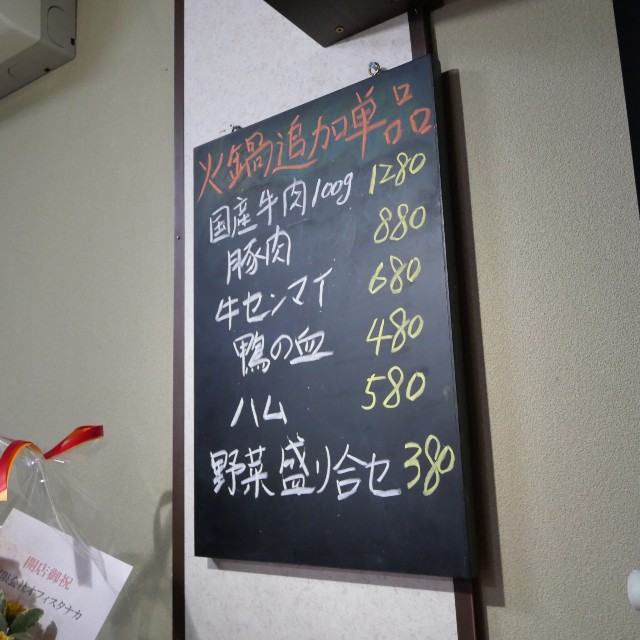 火鍋追加単品
国産牛肉100g 1280
豚肉 880
牛センマイ 680
鴨の血 480
ハム 580
野菜盛り合セ 380
開店御祝
オフィスタナカ